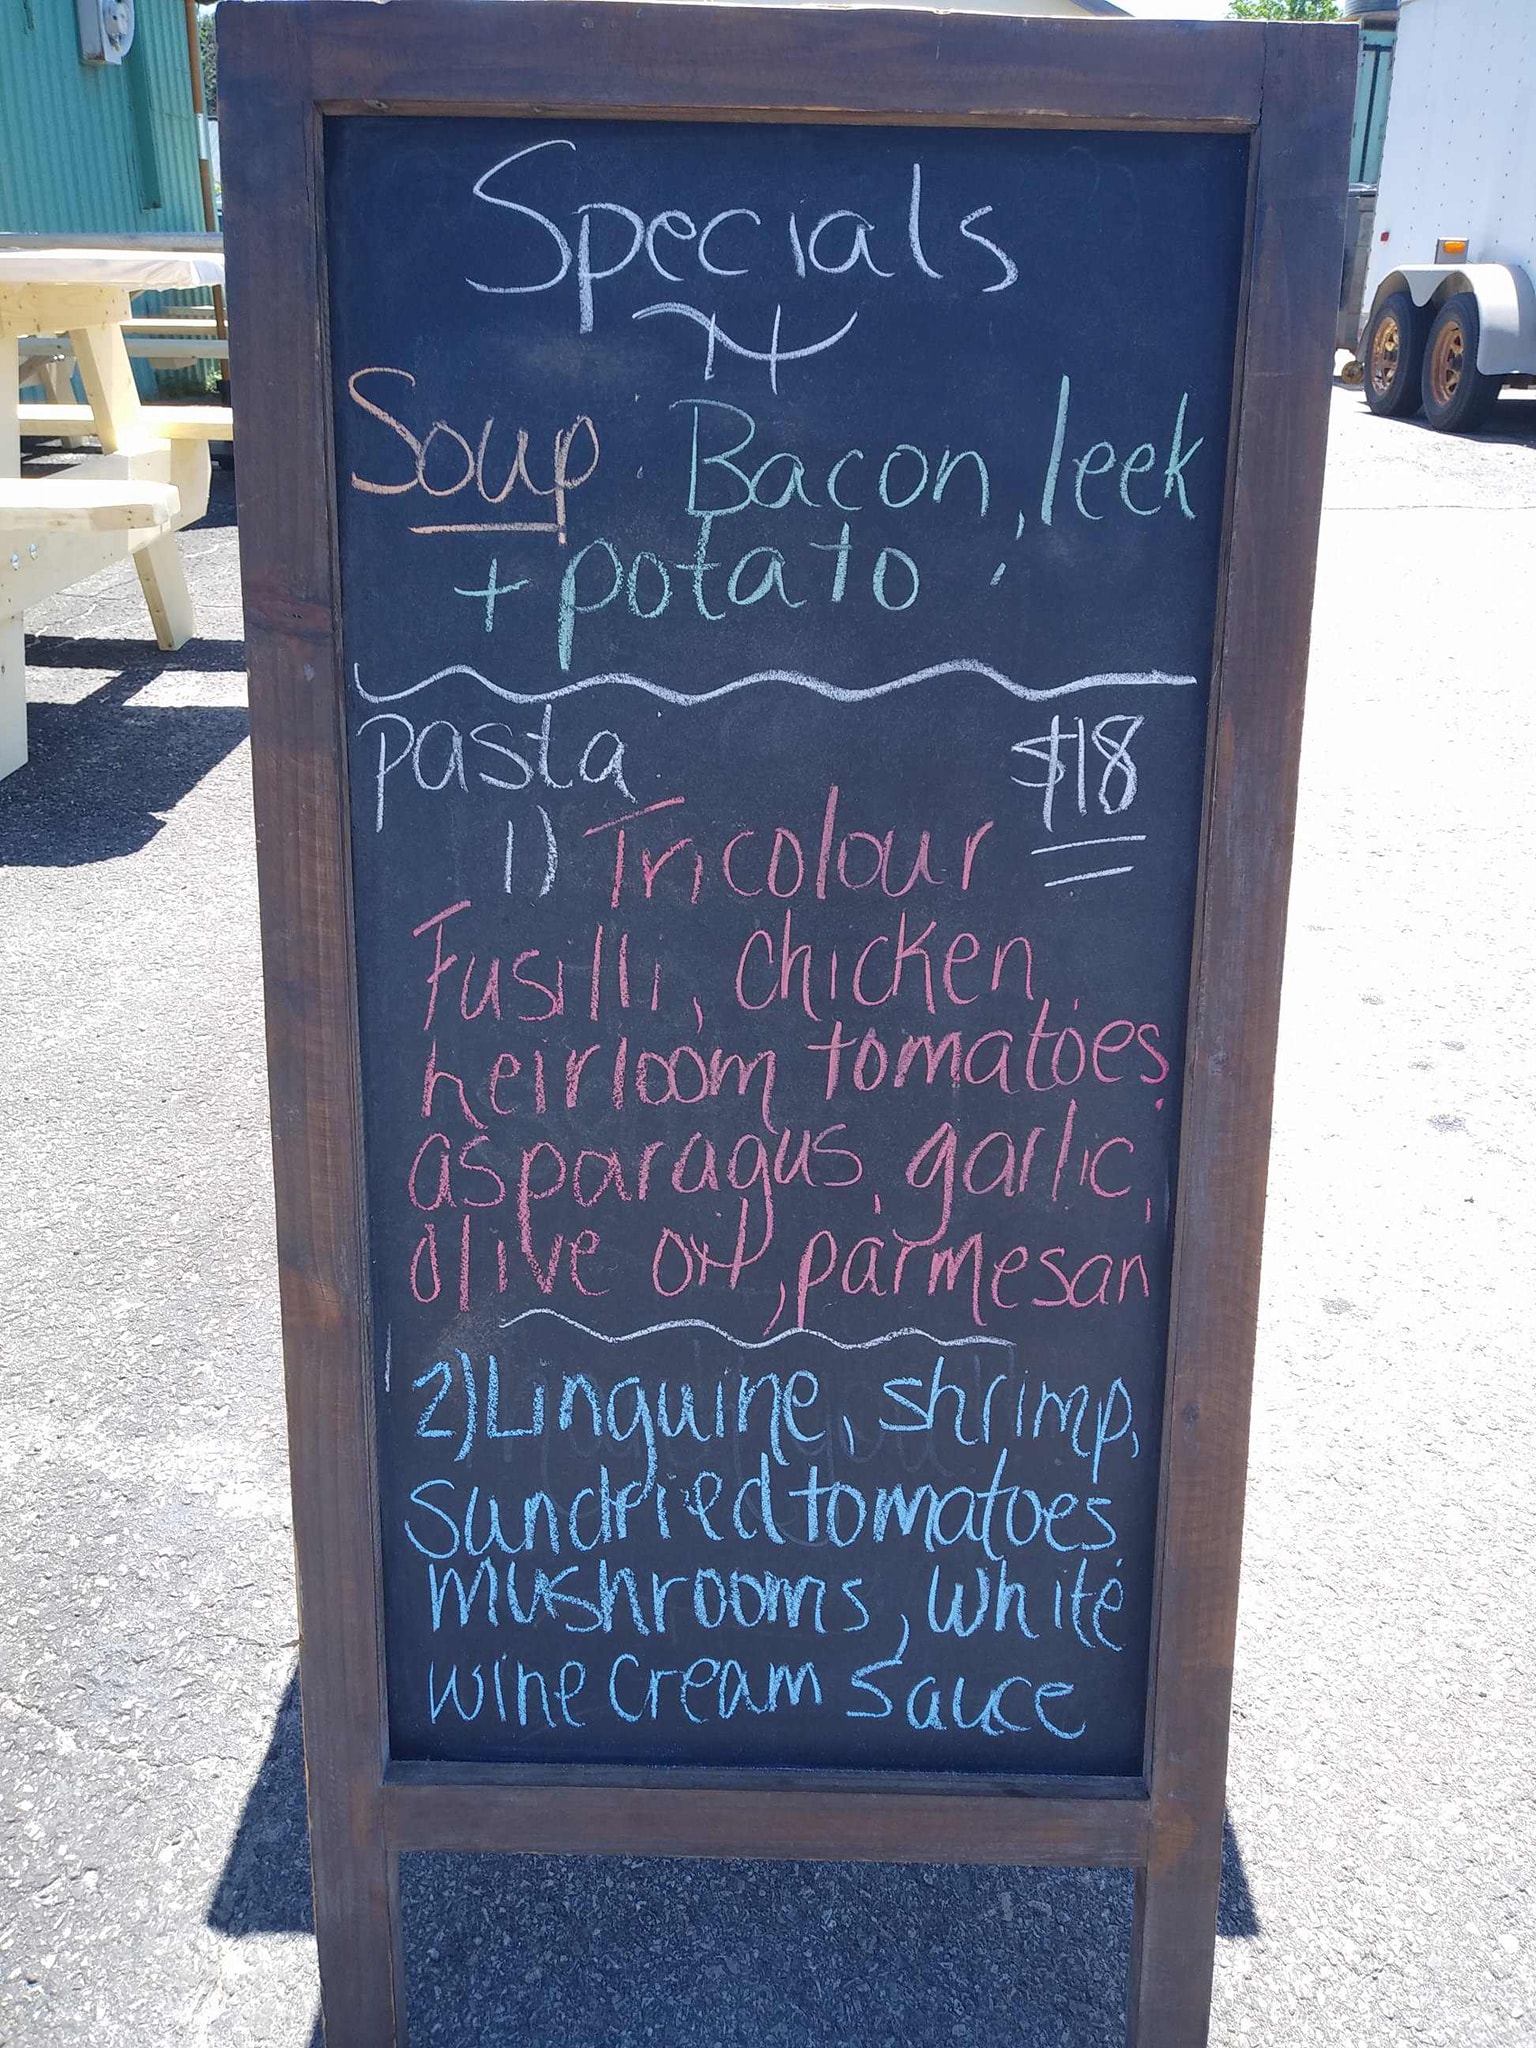 Specials
Soup: Bacon, leek
+ potato
Pasta $18
1) Tricolour
Fusilli, chicken,
heirloom tomatoes,
asparagus, garlic,
olive oil, parmesan
2) Linguine, shrimp,
sundried tomatoes,
mushrooms, white
wine cream sauce